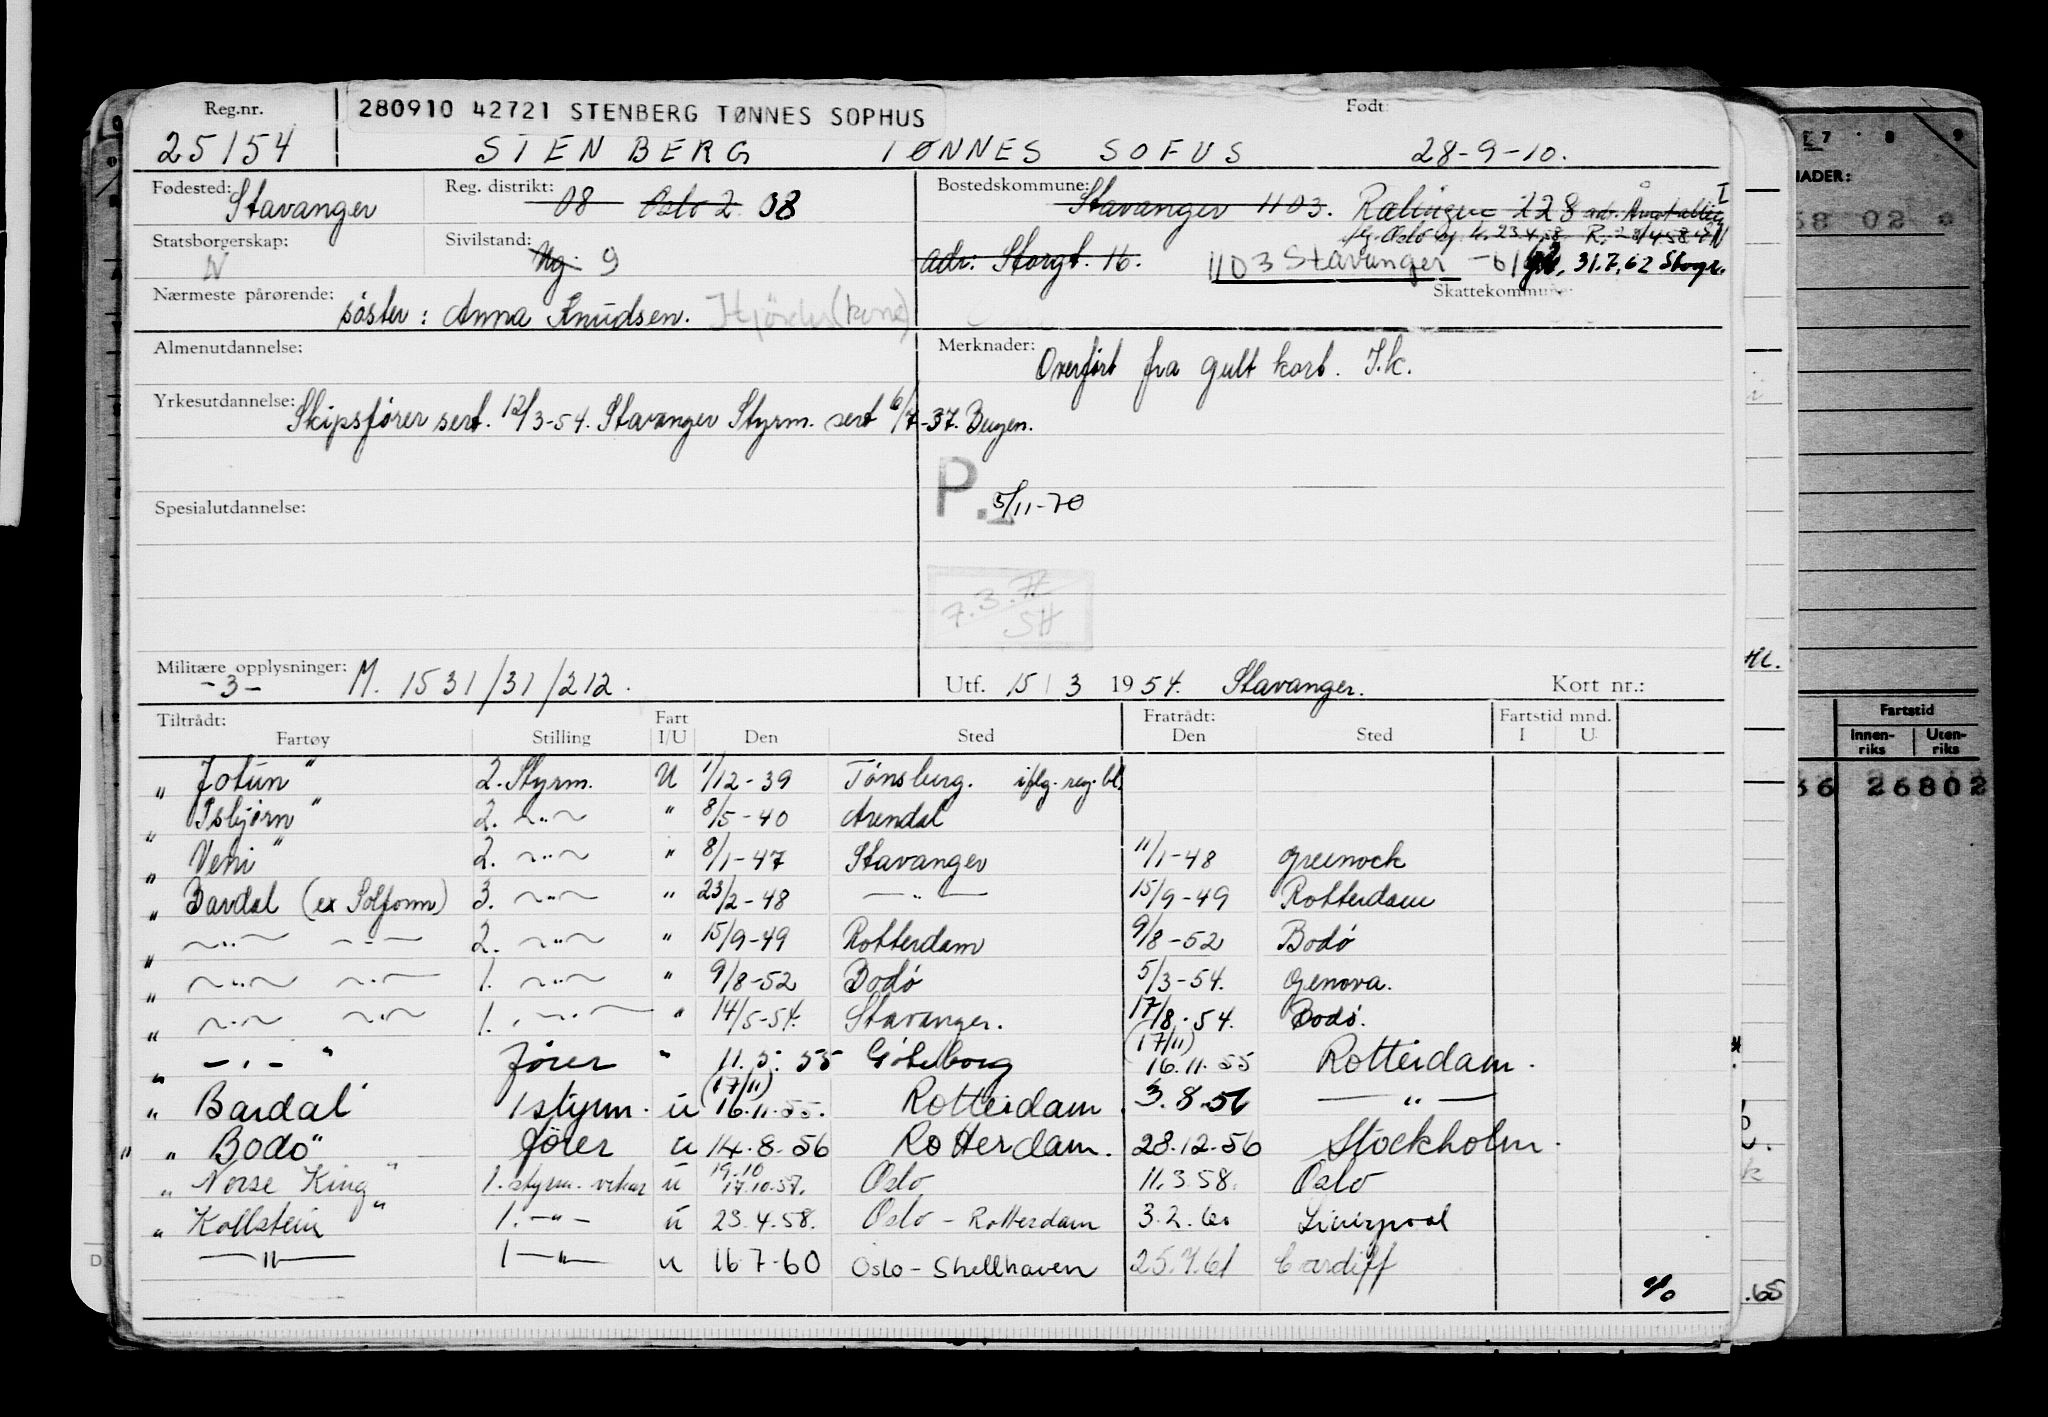 Reg.nr. 280910 42721 STENBERG TØNNES SOPHUS Født:
25154 STENBERG TØNNES SOFUS 28-9-10.
Fødested: Stavanger Reg. distrikt: 08 Oslo 2 08 Bostedskommune: Stavanger 1103. Rælingen 228
Statsborgerskap: N Sivilstand: Ug. g adr: Storgt. 16. 1103 Stavanger 31.7.62
Nærmeste pårørende: søster: Anna Knudsen. Hjørdis (kone) Skattekommune:
Almenutdannelse: Merknader: Overført fra gult kort. I.k.
Yrkesutdannelse: Skipsfører sert. 12/3-54. Stavanger Styrm. sert 6/7-37. Bergen.
P. 5/11-70
Spesialutdannelse:
7.3.
SH
Militære opplysninger: M. 1531/31/212.
-3-
Utf. 15/3 1954. Stavanger. Kort nr.:
Tiltrådt: Fart Fratrådt: Fartstid mnd.
Fartøy Stilling I/U Den Sted Den Sted I U
" Jotun" 2. Styrm. U 1/12-39 Tønsberg. iflg. reg. bl.
" Isbjørn" 2. -"- " 8/5-40 Arendal
" Veni" 2. -"- " 8/1-47 Stavanger 11/1-48 Greenock
" Bardal (ex Solfonn) 3. -"- " 23/2-48 -"- 15/9-49 Rotterdam
" -"- -"- 2. -"- " 15/9-49 Rotterdam 9/8-52 Bodø
" -"- -"- 1. -"- " 9/8-52 Bodø 5/3-54. Genova.
" -"- -"- 1. -"- " 14/5-54. Stavanger. 17/8-54. Bodø.
" -"- " fører " 11.5.55 Göteborg (17/11) 16.11.55 Rotterdam.
" Bardal" 1 styrm. u (17/11) 16.11.55. Rotterdam 3.8.56 -"-
" Bodø" fører u 14.8.56 Rotterdam. 28.12.56 Stockholm.
" Norse King" 1. styrm. vikar u 19.10 17.10.57. Oslo 11.3.58. Oslo
" Kollstein" 1. -"- u 23.4.58. Oslo - Rotterdam 3.2.60 Liverpool
-"- 1 -"- u 16.7-60 Oslo - Shellhaven 25.4.61 Cardiff
7 8 9
NADER:
58 02
Fartstid
Innen-riks Uten-riks
36 26802
.65